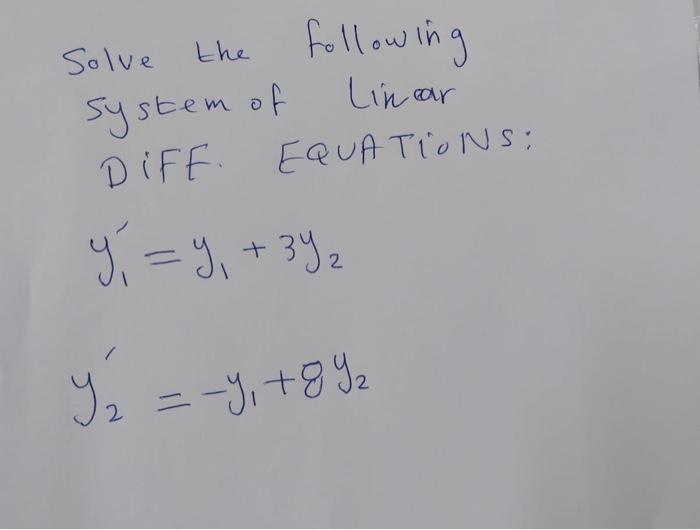 Solve the following
system of Linear
DiFF. EQUATiONS:
y₁′ = y₁ + 3y₂
y₂′ = -y₁ + 8y₂